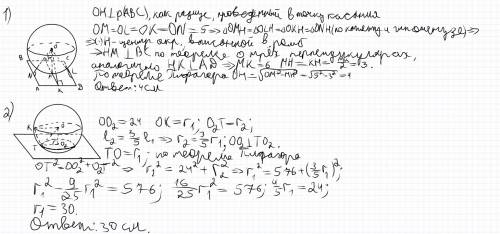 1)
OH⊥p(ABC), как радиус, проведённый в точку касания
OM=OL=OK=ON=5⇒ΔOMH=ΔOLH=ΔOKH=ΔONH(по катету и гипотенузе)⇒
⇒()H-центр окр. вписанной в ромб
⇒HM⊥BC по теореме о трёх перпендикулярах,
аналогично HK⊥AD ⇒MK=6 MH=KH=6/2=3.
По теореме Пифагора OH=√OM²-MH²=√5²-3²=4
Ответ: 4см
2)
OO₂=24 OK=r₁; O₂T=r₂;
l₂=3/5 l₁ ⇒ r₂=3/5 r₁; OO₂⊥TO₂.
TO=r₁; по теореме Пифагора
OT²=OO₂²+O₂T² ⇒ r₁²=24²+r₂² ⇒ r₁²=576+(3/5 r₁)²;
r₁²-9/25 r₁²=576; 16/25 r₁²=576; 4/5 r₁=24;
r₁=30.
Ответ: 30 см.